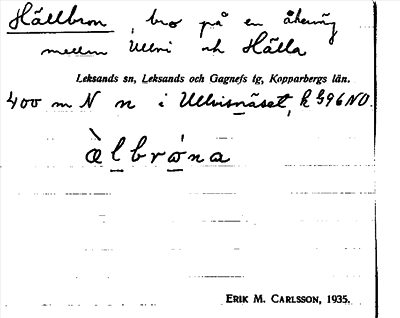 Hällbron, bro på en åkerväg
mellan Ullvi och Hälla
Leksands sn, Leksands och Gagnefs tg, Kopparbergs län.
400 m N n i Ullvisnäset, k 596 NO.
àlbróna
ERIK M. CARLSSON, 1935.